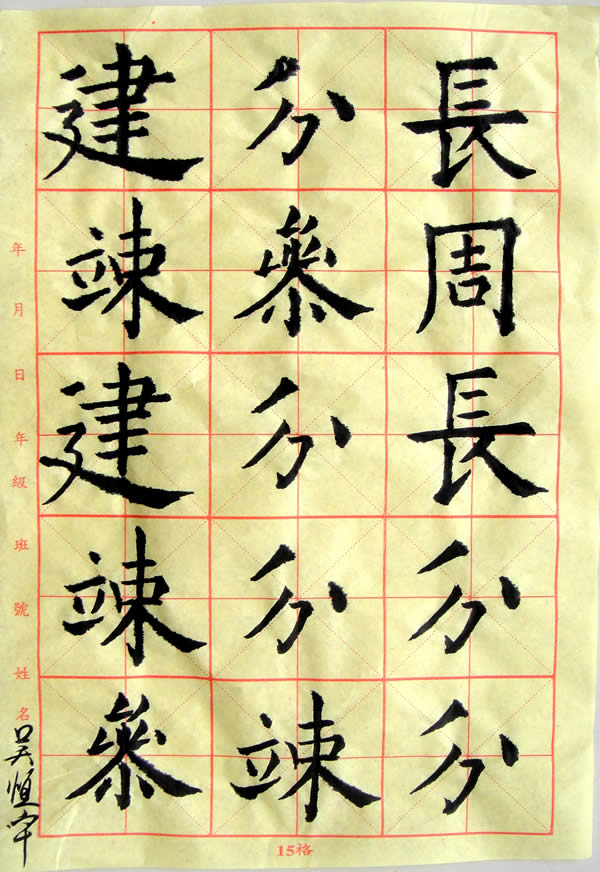 長周長分分
分參分分竦
建竦建竦參
年月日年級班號姓名
吴恒
15格